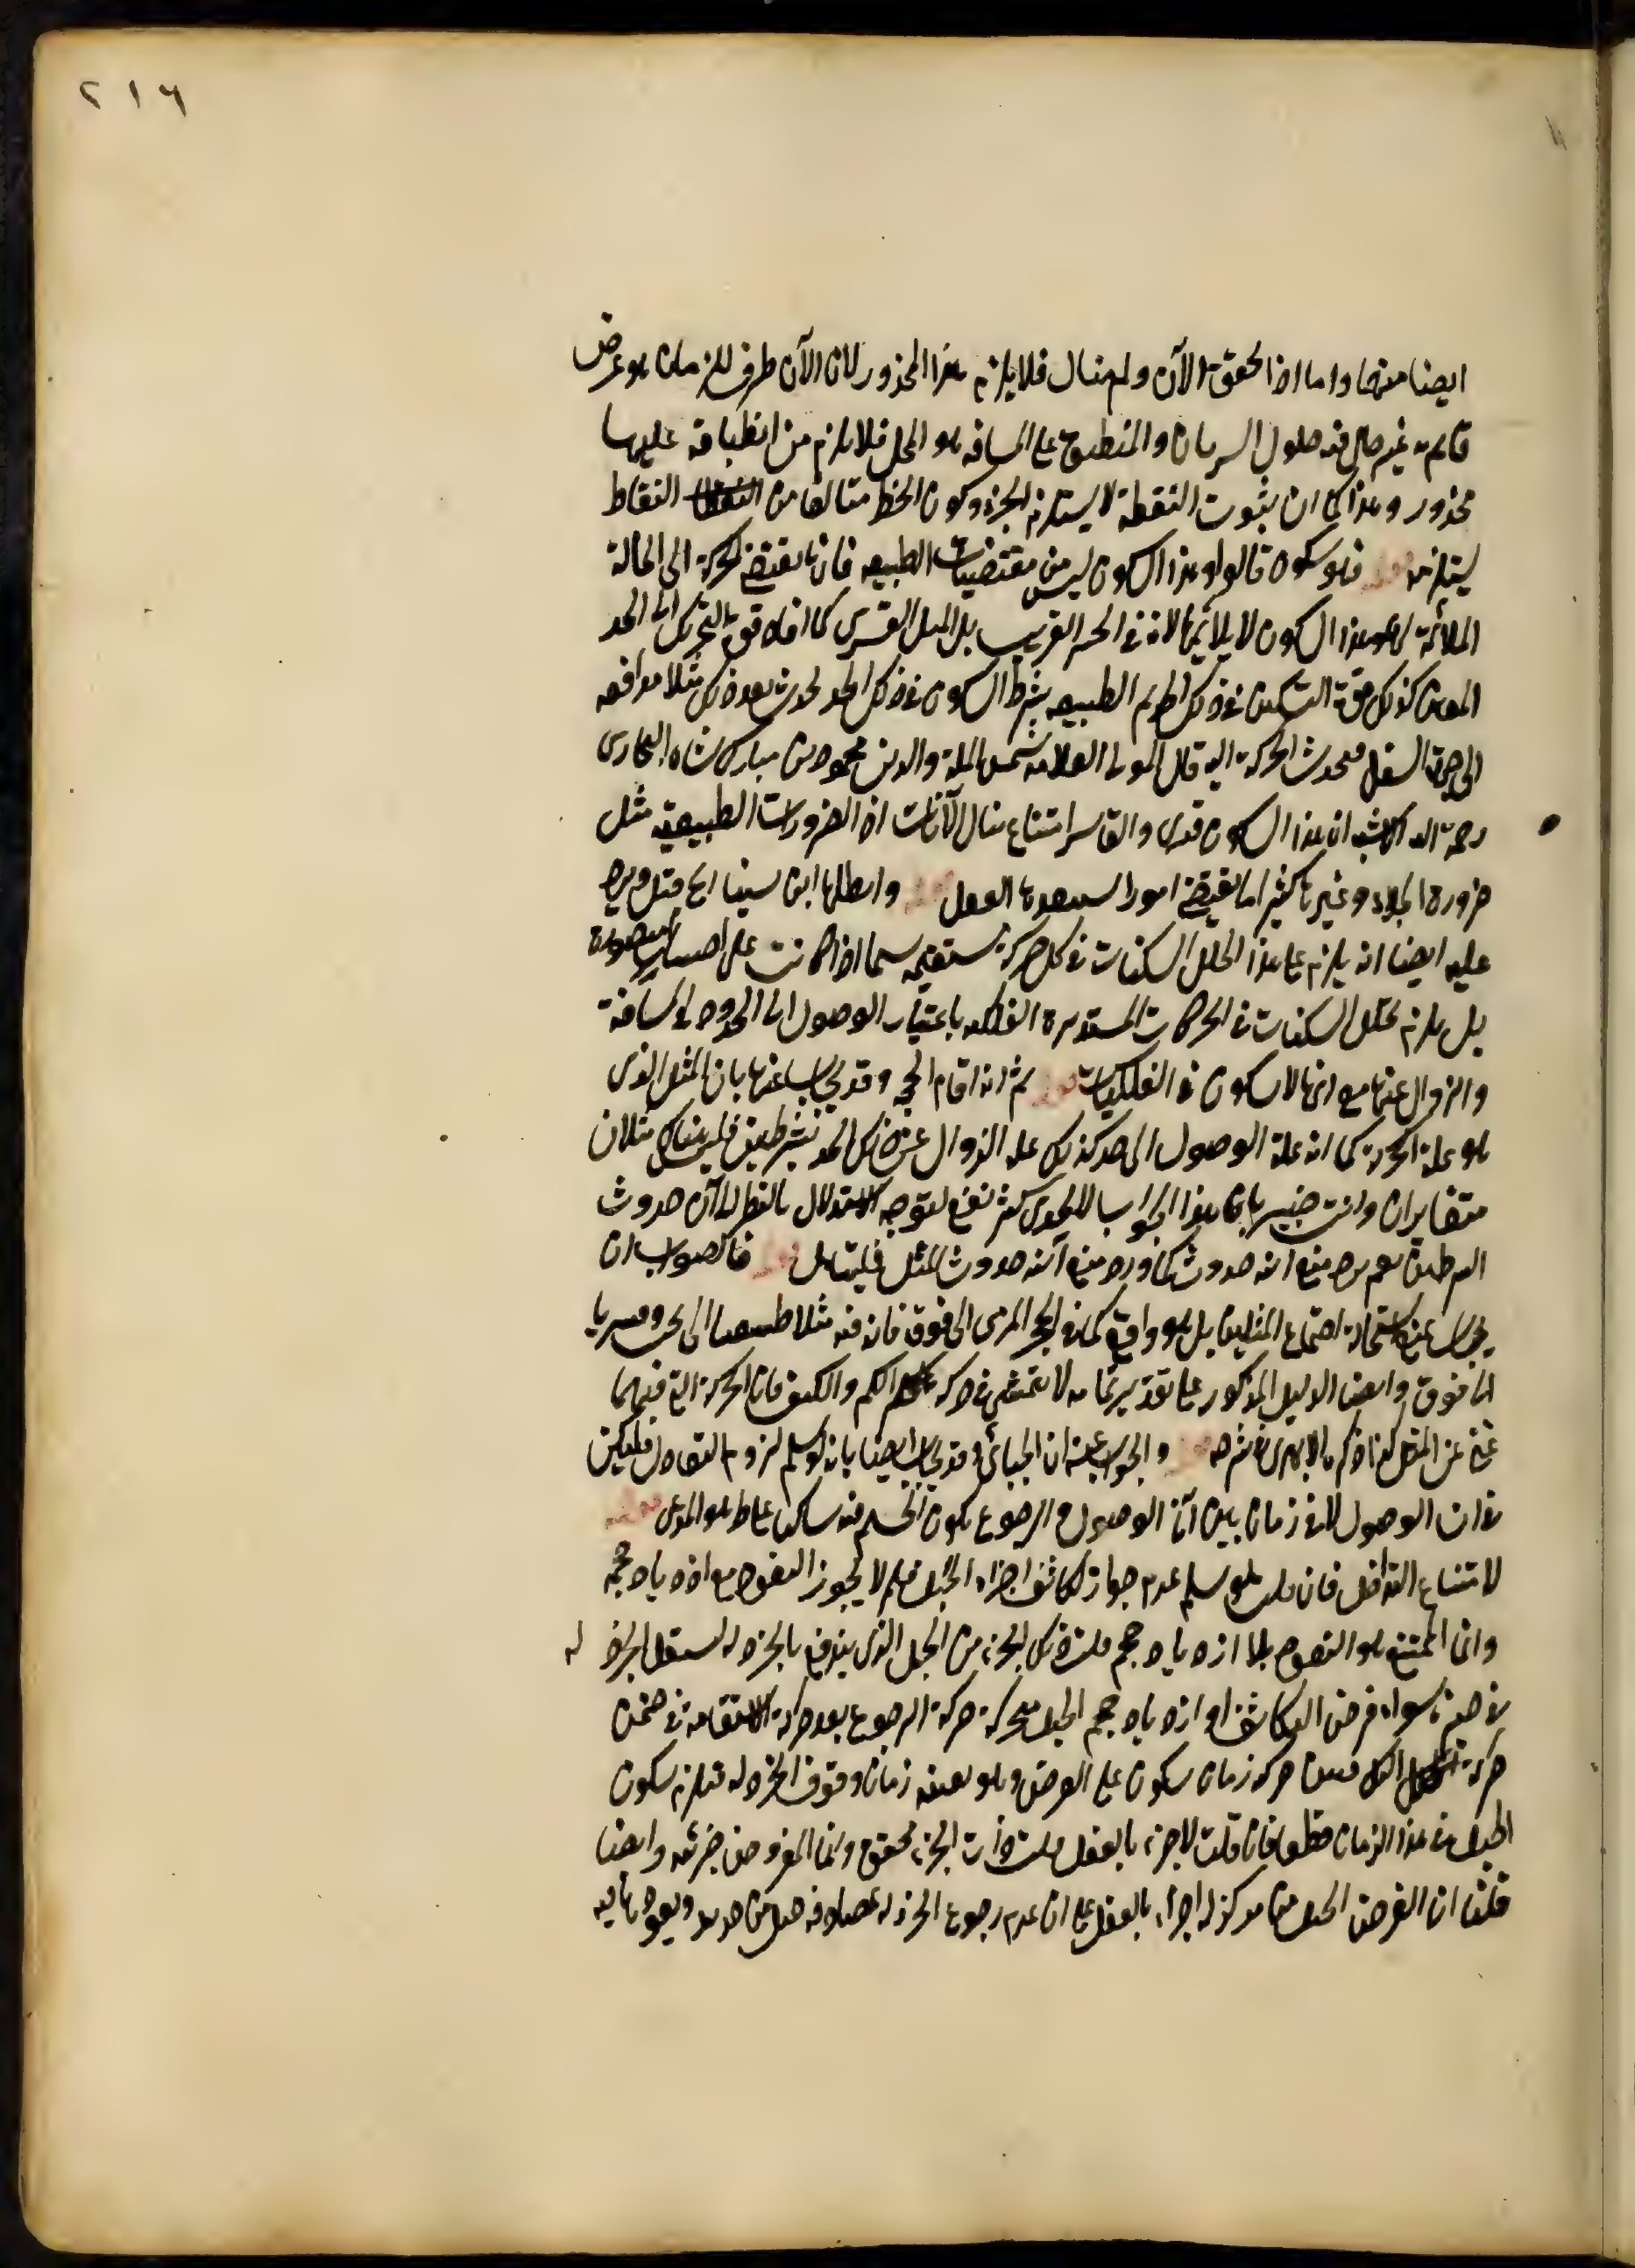 ٢١٦
ايضا منها واما اذا تحقق الآن ولم يتتال فلا يلزم هذا المحذور لان الآن طرف للزمان هو عرض
قائم به غير حال فيه حلول السريان والمنطبق على المسافة هو المحل فلا يلزم من انطباقه عليها
محذور وهذا كما ان ثبوت النقطة لا يستلزم الجزء وكون الخط متالفا من النقاط
يستلزمه قوله فهو سكون قالوا وهذا السكون ليس من مقتضيات الطبيعة فانها يقتضى الحركة الى الحالة
الملائمة وهذا السكون لا يلائمها لانه فى الحيز الغريب بل الميل القسرى كما افاد قوة التحريك الى الحد
المعين كذلك قوة التسكين فى ذلك الحد ثم الطبيعة بشرط السكون فى ذلك الحد يحدث بعد ذلك مثلا مدافعة
الى جهة السفل فيحدث الحركة اليه قال المولى العلامة شمس الملة والدين محمود بن مباركشاه البخارى
رحمه الله الاشبه ان هذا السكون قسرى والقاسر امتناع تتالى الآنات اذ الضرورات الطبيعية مثل
ضرورة الخلاء وغيرها كثيرا ما يقتضى امورا يستبعدها العقل قوله وابطلها ابن سينا الخ قيل ويرد
عليه ايضا انه يلزم على هذا تخلل السكنات فى كل حركة مستقيمة سيما اذا كانت على اجسام منضودة
بل يلزم تخلل السكنات فى الحركات المستديرة الفلكية باعتبار الوصول الى الحدود فى المسافة
والزوال عنها مع انها لا سكون فى الفلكيات قوله ثم انه اقام الحجة وقد يجاب عنها بان الميل الذى
هو علة الحركة كما انه علة الوصول الى حد كذلك علة الزوال عن ذلك الحد بشرطين فليس هناك ميلان
متغايران وانت خبير بان هذا الجواب لا يجدى كثير نفع لتوجه الاستدلال بالنظر الى آن حدوث
الشرطين نعم يرد منع آنية حدوثه كما ورد منع آنية حدوث الميل فليتامل قوله فالصواب ان
يجاب عنه استحالة اجتماع الميلين بل هو واقع كما فى الحجر المرمى الى فوق فان فيه ميلا طبيعيا الى تحت وقسريا
الى فوق وايضا الدليل المذكور على تقدير تمامه لا يتمشى فى حركة الكم والكيف فان الحركة التى فيهما
غنى عن الميل كذا ذكره الابهرى فى شرحه قوله والجواب عنه ان الجبائى وقد يجاب ايضا بانه لو سلم لزوم التعادل فليكن
فى آن الوصول لا فى زمان بين آنى الوصول والرجوع يكون الجسم فيه ساكنا على ما هو المدعى قوله
لامتناع التداخل فان قلت هلو سلم عدم جواز تكاثف اجزاء الجبل فلم لا يجوز النفوذ مع ازدياد حجمه
وانما الممتنع هو النفوذ بلا ازدياد حجم قلت ذلك الجزء من الجبل الذى يندفع بالخردلة ليستقل الجزء له
فى حيزه سواء فرض التكاثف او ازدياد حجم الجبل متحركة حركة الرجوع بعد حركة الاستقامة فى ضمن
حركة الكل فبين حركته زمان سكون على الفرض وهو بعينه زمان وقوف الخردلة فيلزم سكون
الجبل فى هذا الزمان قطعا فان قلت لا جزء بالفعل قلت ذات الجزء محقق وانما المفروض جزئيته وايضا
قلنا ان الفرض الجبل من مركز له اجزاء بالفعل على ان عدم رجوع الخردلة بمصادفة جبل من حديد ويعود ها يه